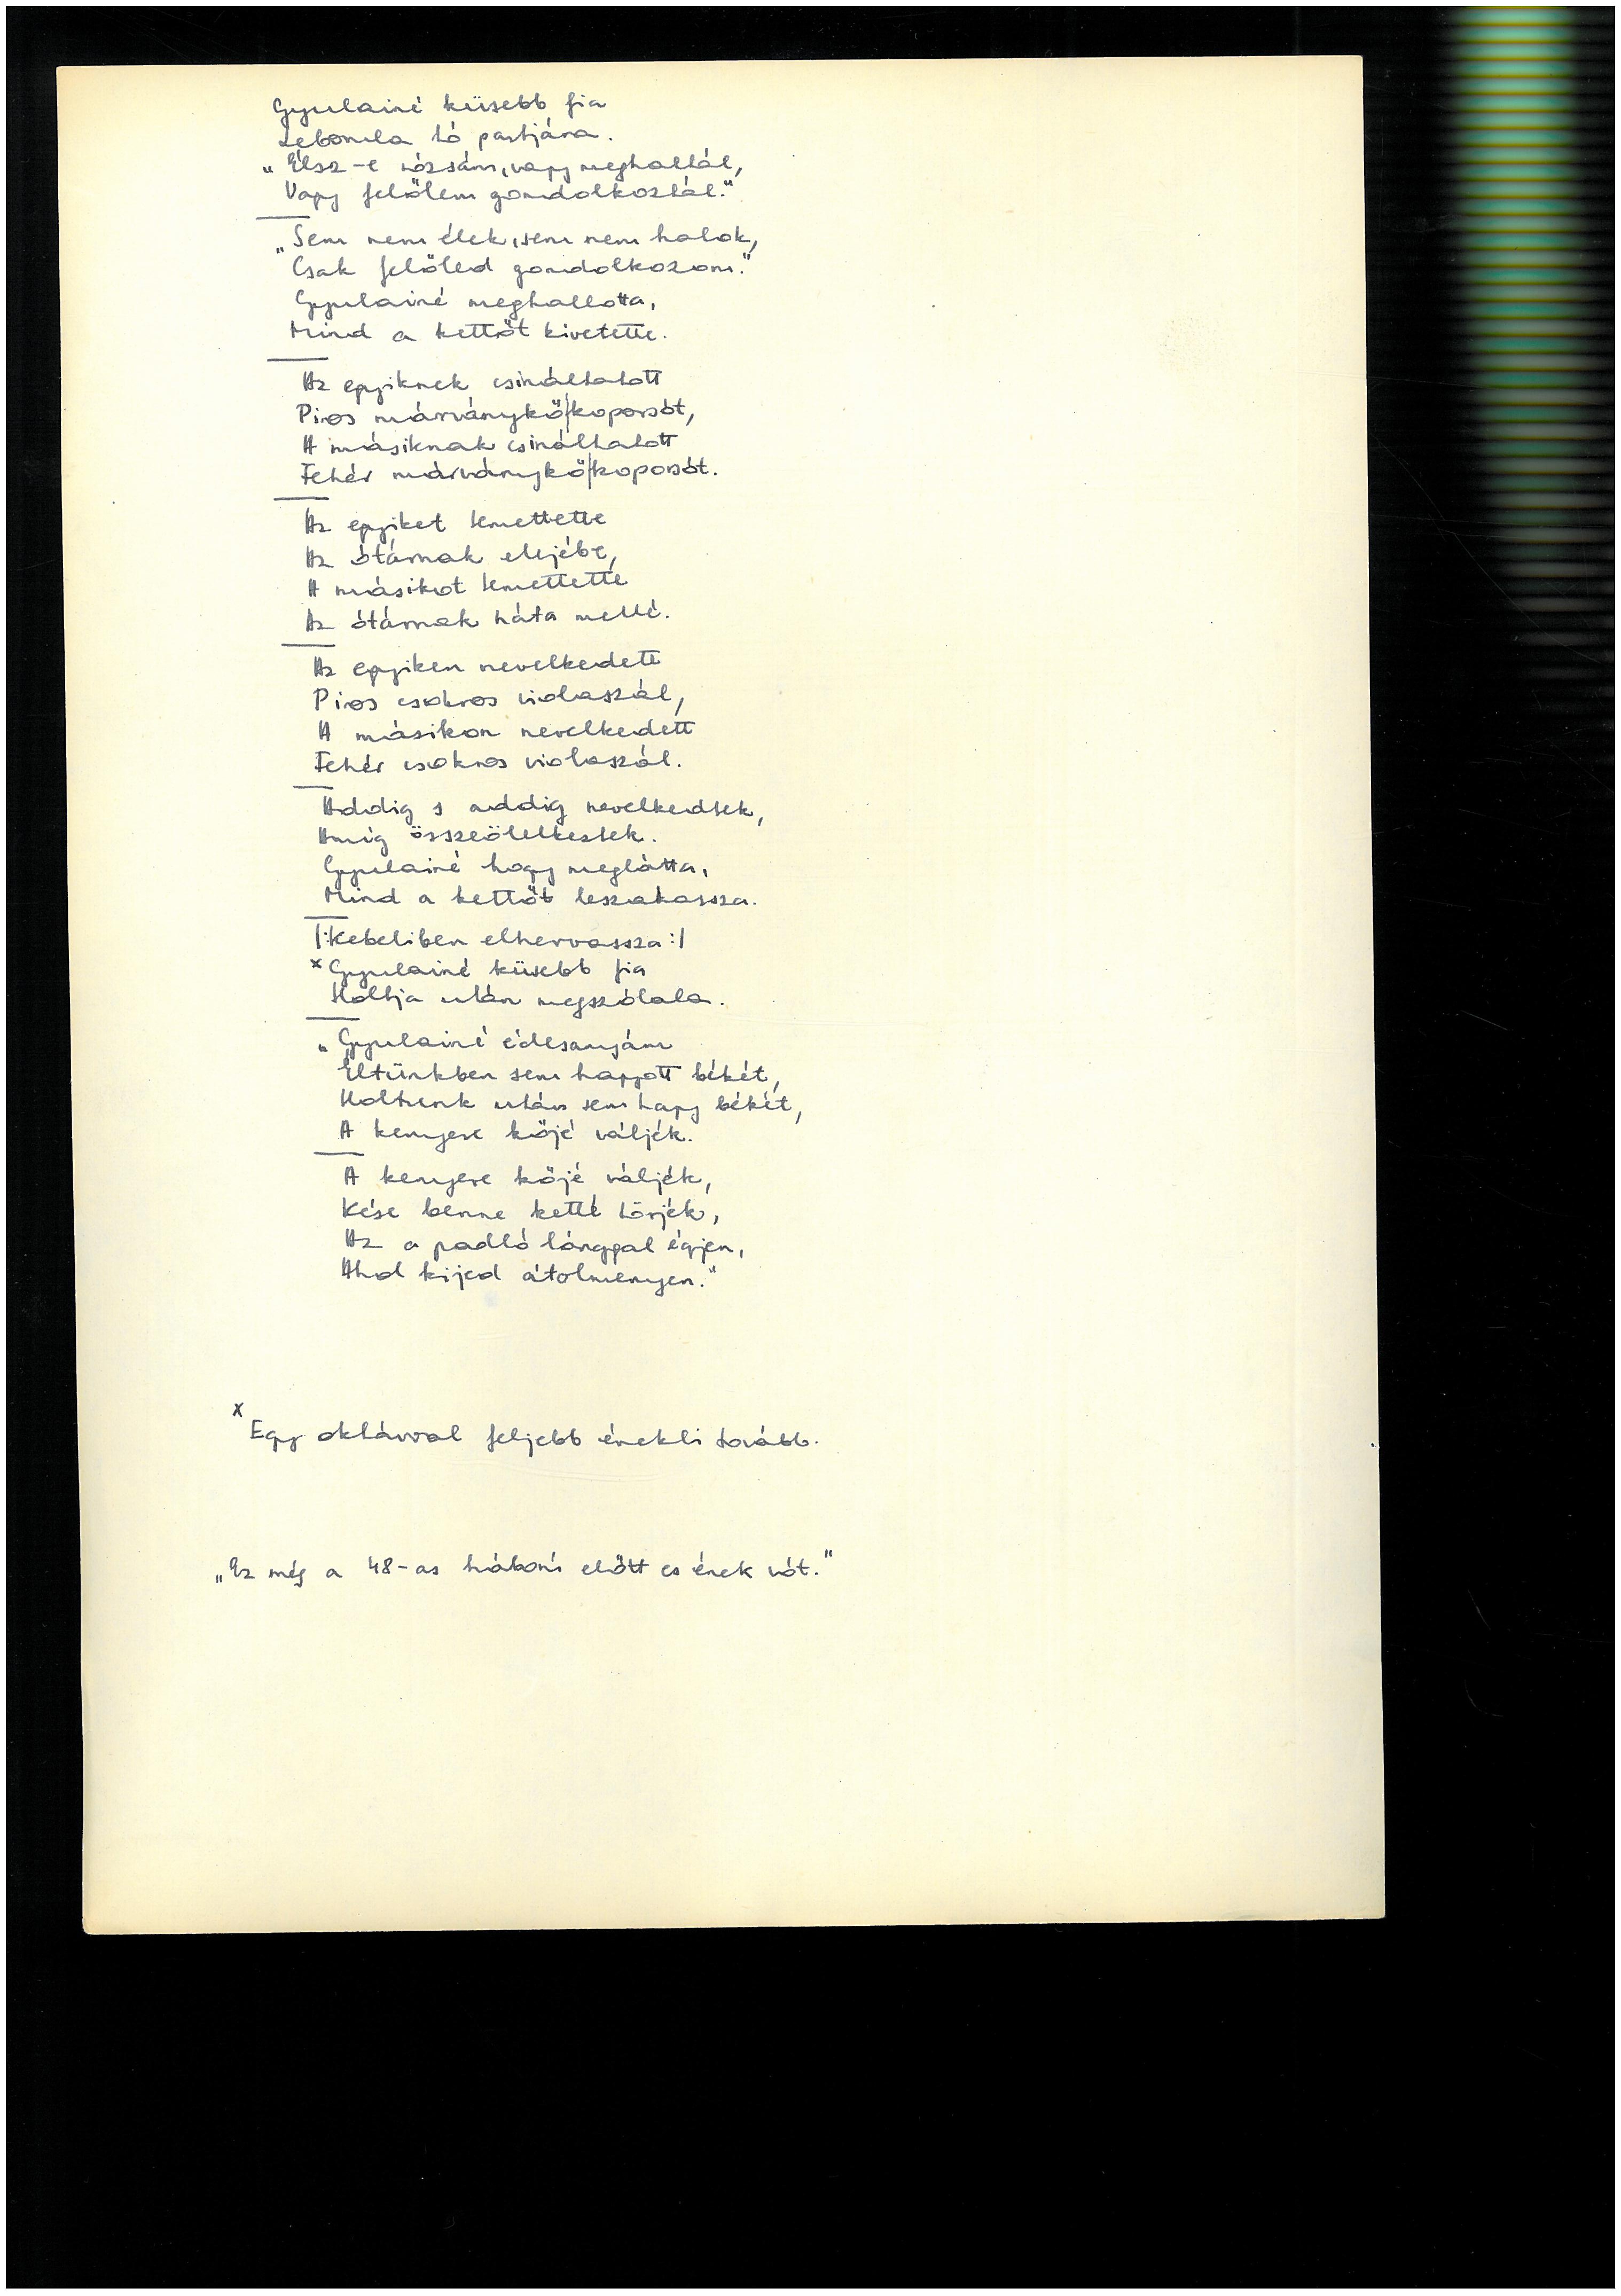 Gyulainé küsebb fia
Leborula tó partjára.
„Élsz-e rózsám, vagy meghaltál,
Vagy felőlem gondolkoztál."
„Sem nem élek, sem nem halok,
Csak felőled gondolkozom."
Gyulainé meghallotta,
Mind a kettőt kivetette.
Az egyiknek csináltatott
Piros márványkő/koporsót,
A másiknak csináltatott
Fehér márványkő/koporsót.
Az egyiket temettette
Az ótárnak elejébe,
A másikot temettette
Az ótárnak háta mellé.
Az egyiken nevelkedett
Piros csokros violaszál,
A másikon nevelkedett
Fehér csokros violaszál.
Addig s addig nevelkedtek,
Amíg összeölelkeztek.
Gyulainé hogy meglátta,
Mind a kettőt leszakassza.
|:Kebeliben elhervassza:|
x Gyulainé küsebb fia
Holtja után megszólala.
„Gyulainé édesanyám
Éltünkben sem hagyott békét,
Holtunk után sem hagy békét,
A kenyere kőjé váljék.
A kenyere kőjé váljék,
Kése benne ketté törjék,
Az a padló lánggal égjen,
Ahol kijed átolmenyen."
x
Egy oktávval feljebb énekli tovább.
„Ez még a 48-as háború előtt es ének vót."